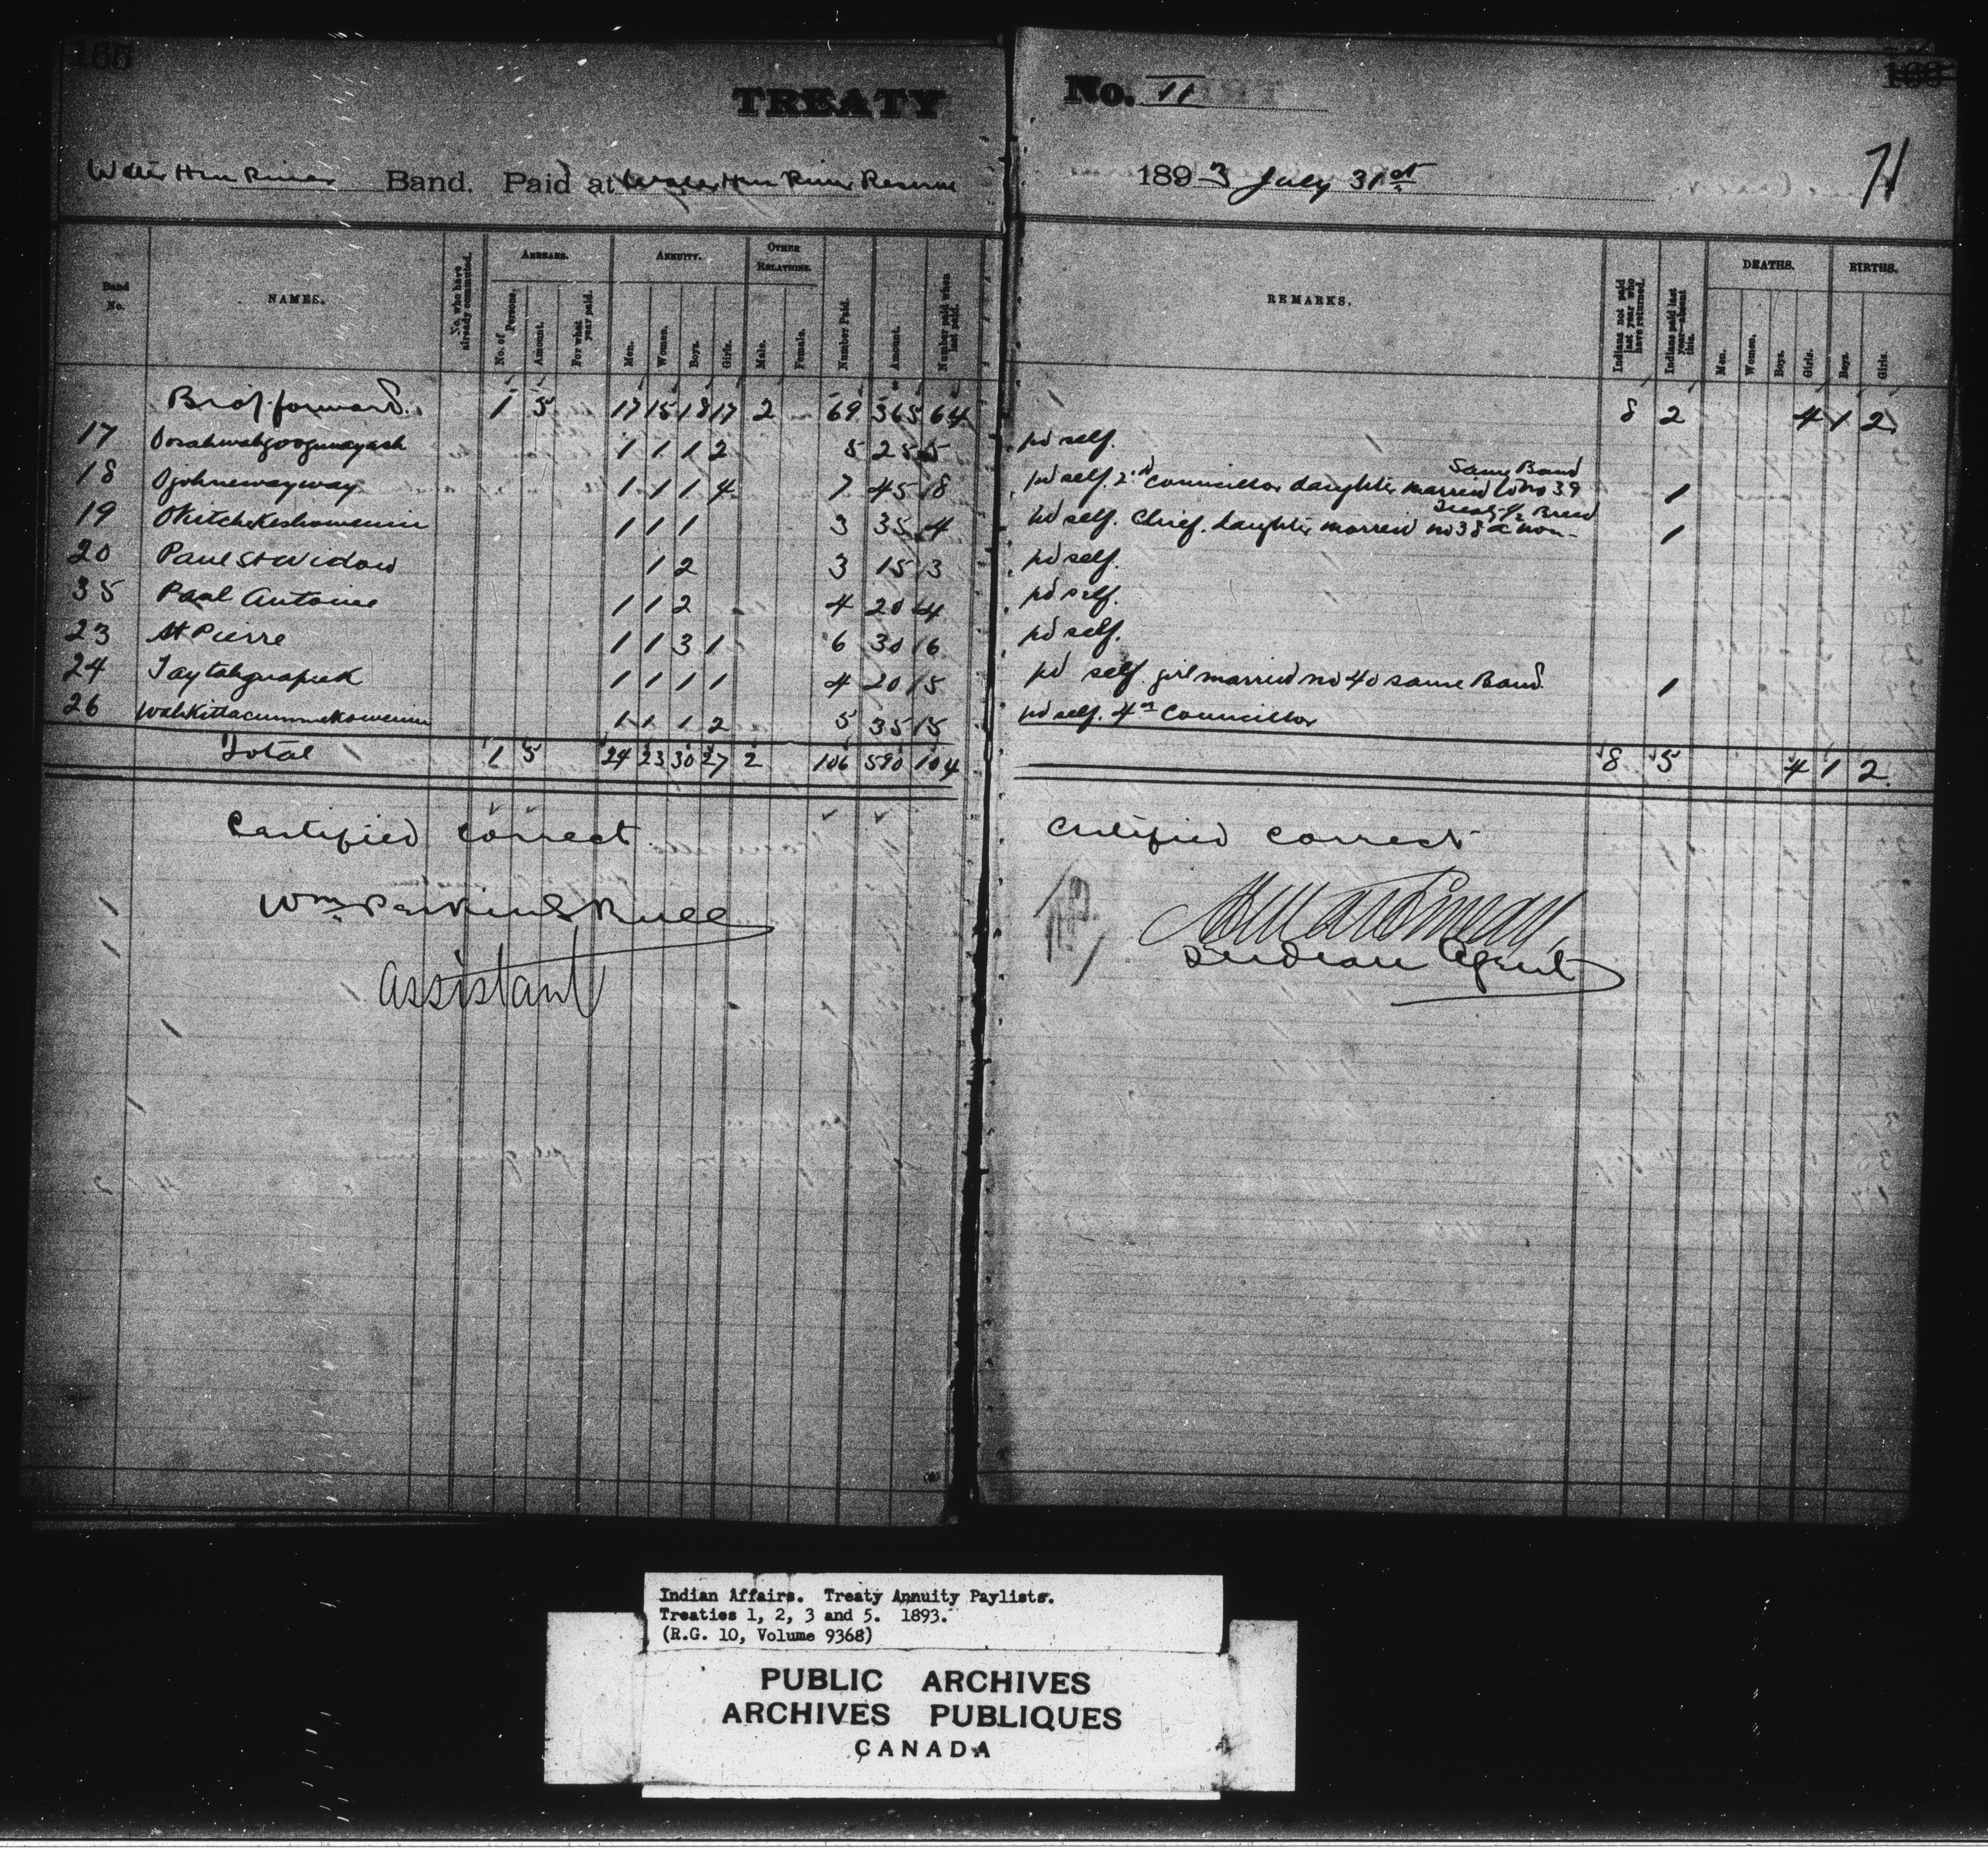 165
TREATY No. II
Water Hen River Band. Paid at Water Hen River Reserve 1893 July 31st
71
Band No.
NAMES.
No. who have already commuted.
ARREARS.
No. of Persons.
Amount.
For what year paid.
ANNUITY.
Men.
Women.
Boys.
Girls.
OTHER RELATIONS.
Male.
Female.
Number Paid.
Amount.
Number paid when last paid.
REMARKS.
Indians not paid last year who have returned.
Indians paid last year—absent this.
DEATHS.
Men.
Women.
Boys.
Girls.
BIRTHS.
Boys.
Girls.
Brot forward 1 5 17 15 18 17 2 69 365 64 8 2 4 1 2
17 1 1 1 2 5 25 5 pd self.
18 Ojohnewayway 1 1 1 4 7 45 8 pd self. 2nd Councillor daughter married to no 39 Same Band 1
19 Okitchekeshowenin 1 1 1 3 35 4 pd self. Chief. daughter married no 38 a non-Treaty ½ Breed 1
20 Paul St Widow 1 2 3 15 3 pd self.
35 Paul Antoine 1 1 2 4 20 4 pd self.
23 St Pierre 1 1 3 1 6 30 6 pd self.
24 Taytahguapeek 1 1 1 1 4 20 5 pd self. girl married no 40 same Band 1
26 Wahkittacummekowenin 1 1 1 2 5 35 5 pd self. 4th Councillor
Total 1 5 24 23 30 27 2 106 590 104 8 5 4 1 2
Certified Correct
Wm Perkins Bull
Assistant
Certified Correct
Indian Agent
Indian Affairs. Treaty Annuity Paylists.
Treaties 1, 2, 3 and 5. 1893.
(R.G. 10, Volume 9368)
PUBLIC ARCHIVES
ARCHIVES PUBLIQUES
CANADA